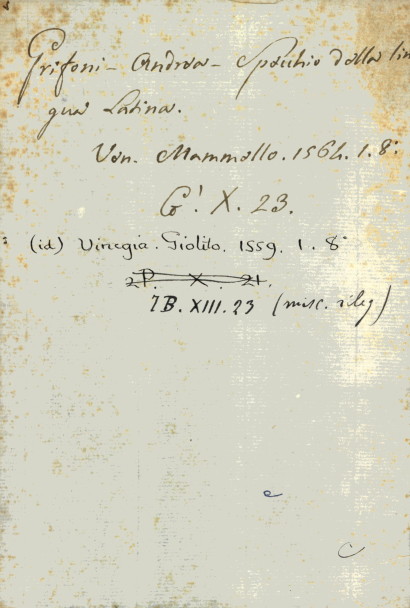 Grifoni - Andrea - Specchio della lin
gua Latina.
Ven. Mammello. 1564. 1. 8°
G' X. 23.
(id) Vinegia. Giolito. 1559. 1. 8°
2. D. X. 21.
7B. XIII. 23 (misc. rileg)
e
c